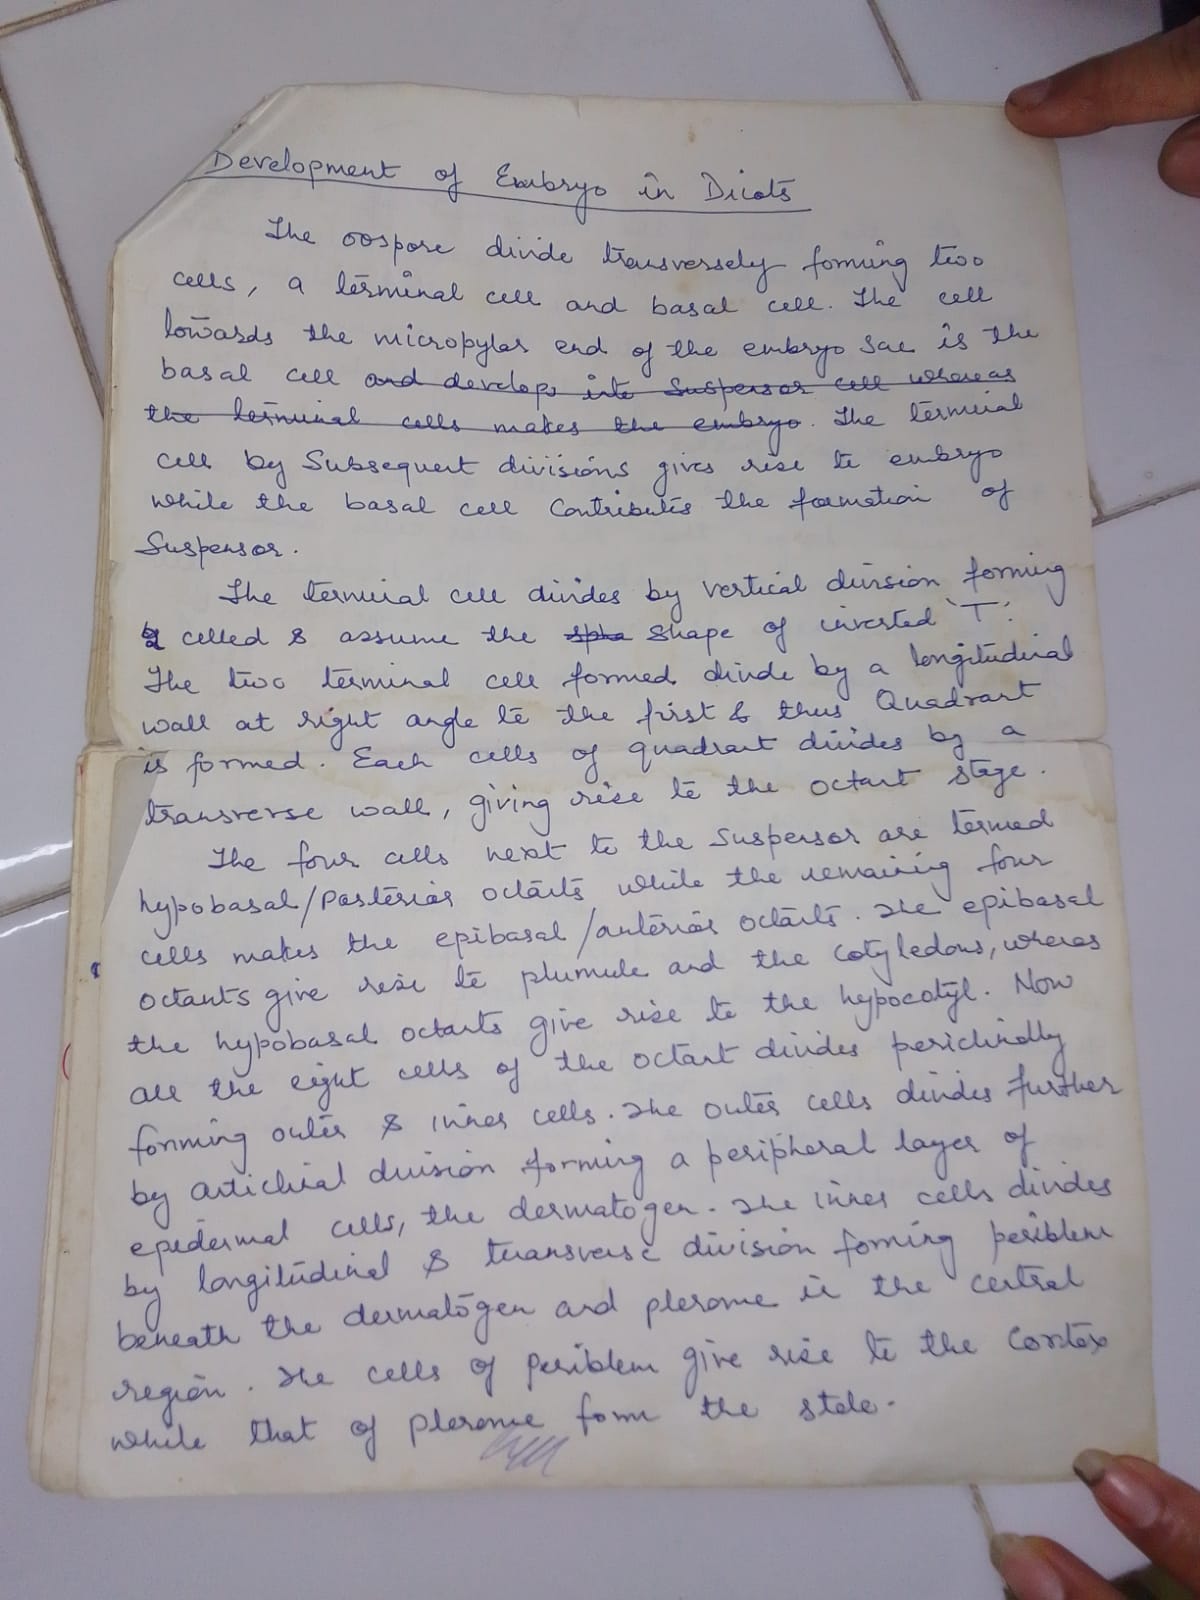 Development of Embryo in Dicots
The oospore divide transversely forming two
cells, a terminal cell and basal cell. The cell
towards the micropylar end of the embryo sac is the
basal cell and develops into suspensor cell whereas
the terminal cells makes the embryo. The terminal
cell by Subsequent divisions gives rise to embryo
while the basal cell Contributes the formation of
Suspensor.
The terminal cell divides by vertical division forming
2 celled & assume the spha shape of inverted 'T'.
The two terminal cell formed divide by a longitudinal
wall at right angle to the first & thus Quadrant
is formed. Each cells of quadrant divides by a
transverse wall, giving rise to the octant stage.
The four cells next to the suspensor are termed
hypobasal/posterior octants while the remaining four
cells makes the epibasal/anterior octants. The epibasal
octants give rise to plumule and the cotyledons, wheras
the hypobasal octants give rise to the hypocotyl. Now
all the eight cells of the octant divides periclinally
forming outer & inner cells. The outer cells divides further
by anticlinal division forming a peripheral layer of
epidermal cells, the dermatogen. The inner cells divides
by longitudinal & transverse division forming periblem
beneath the dermatogen and plerome in the central
region. The cells of periblem give rise to the cortex
while that of plerome form the stele.